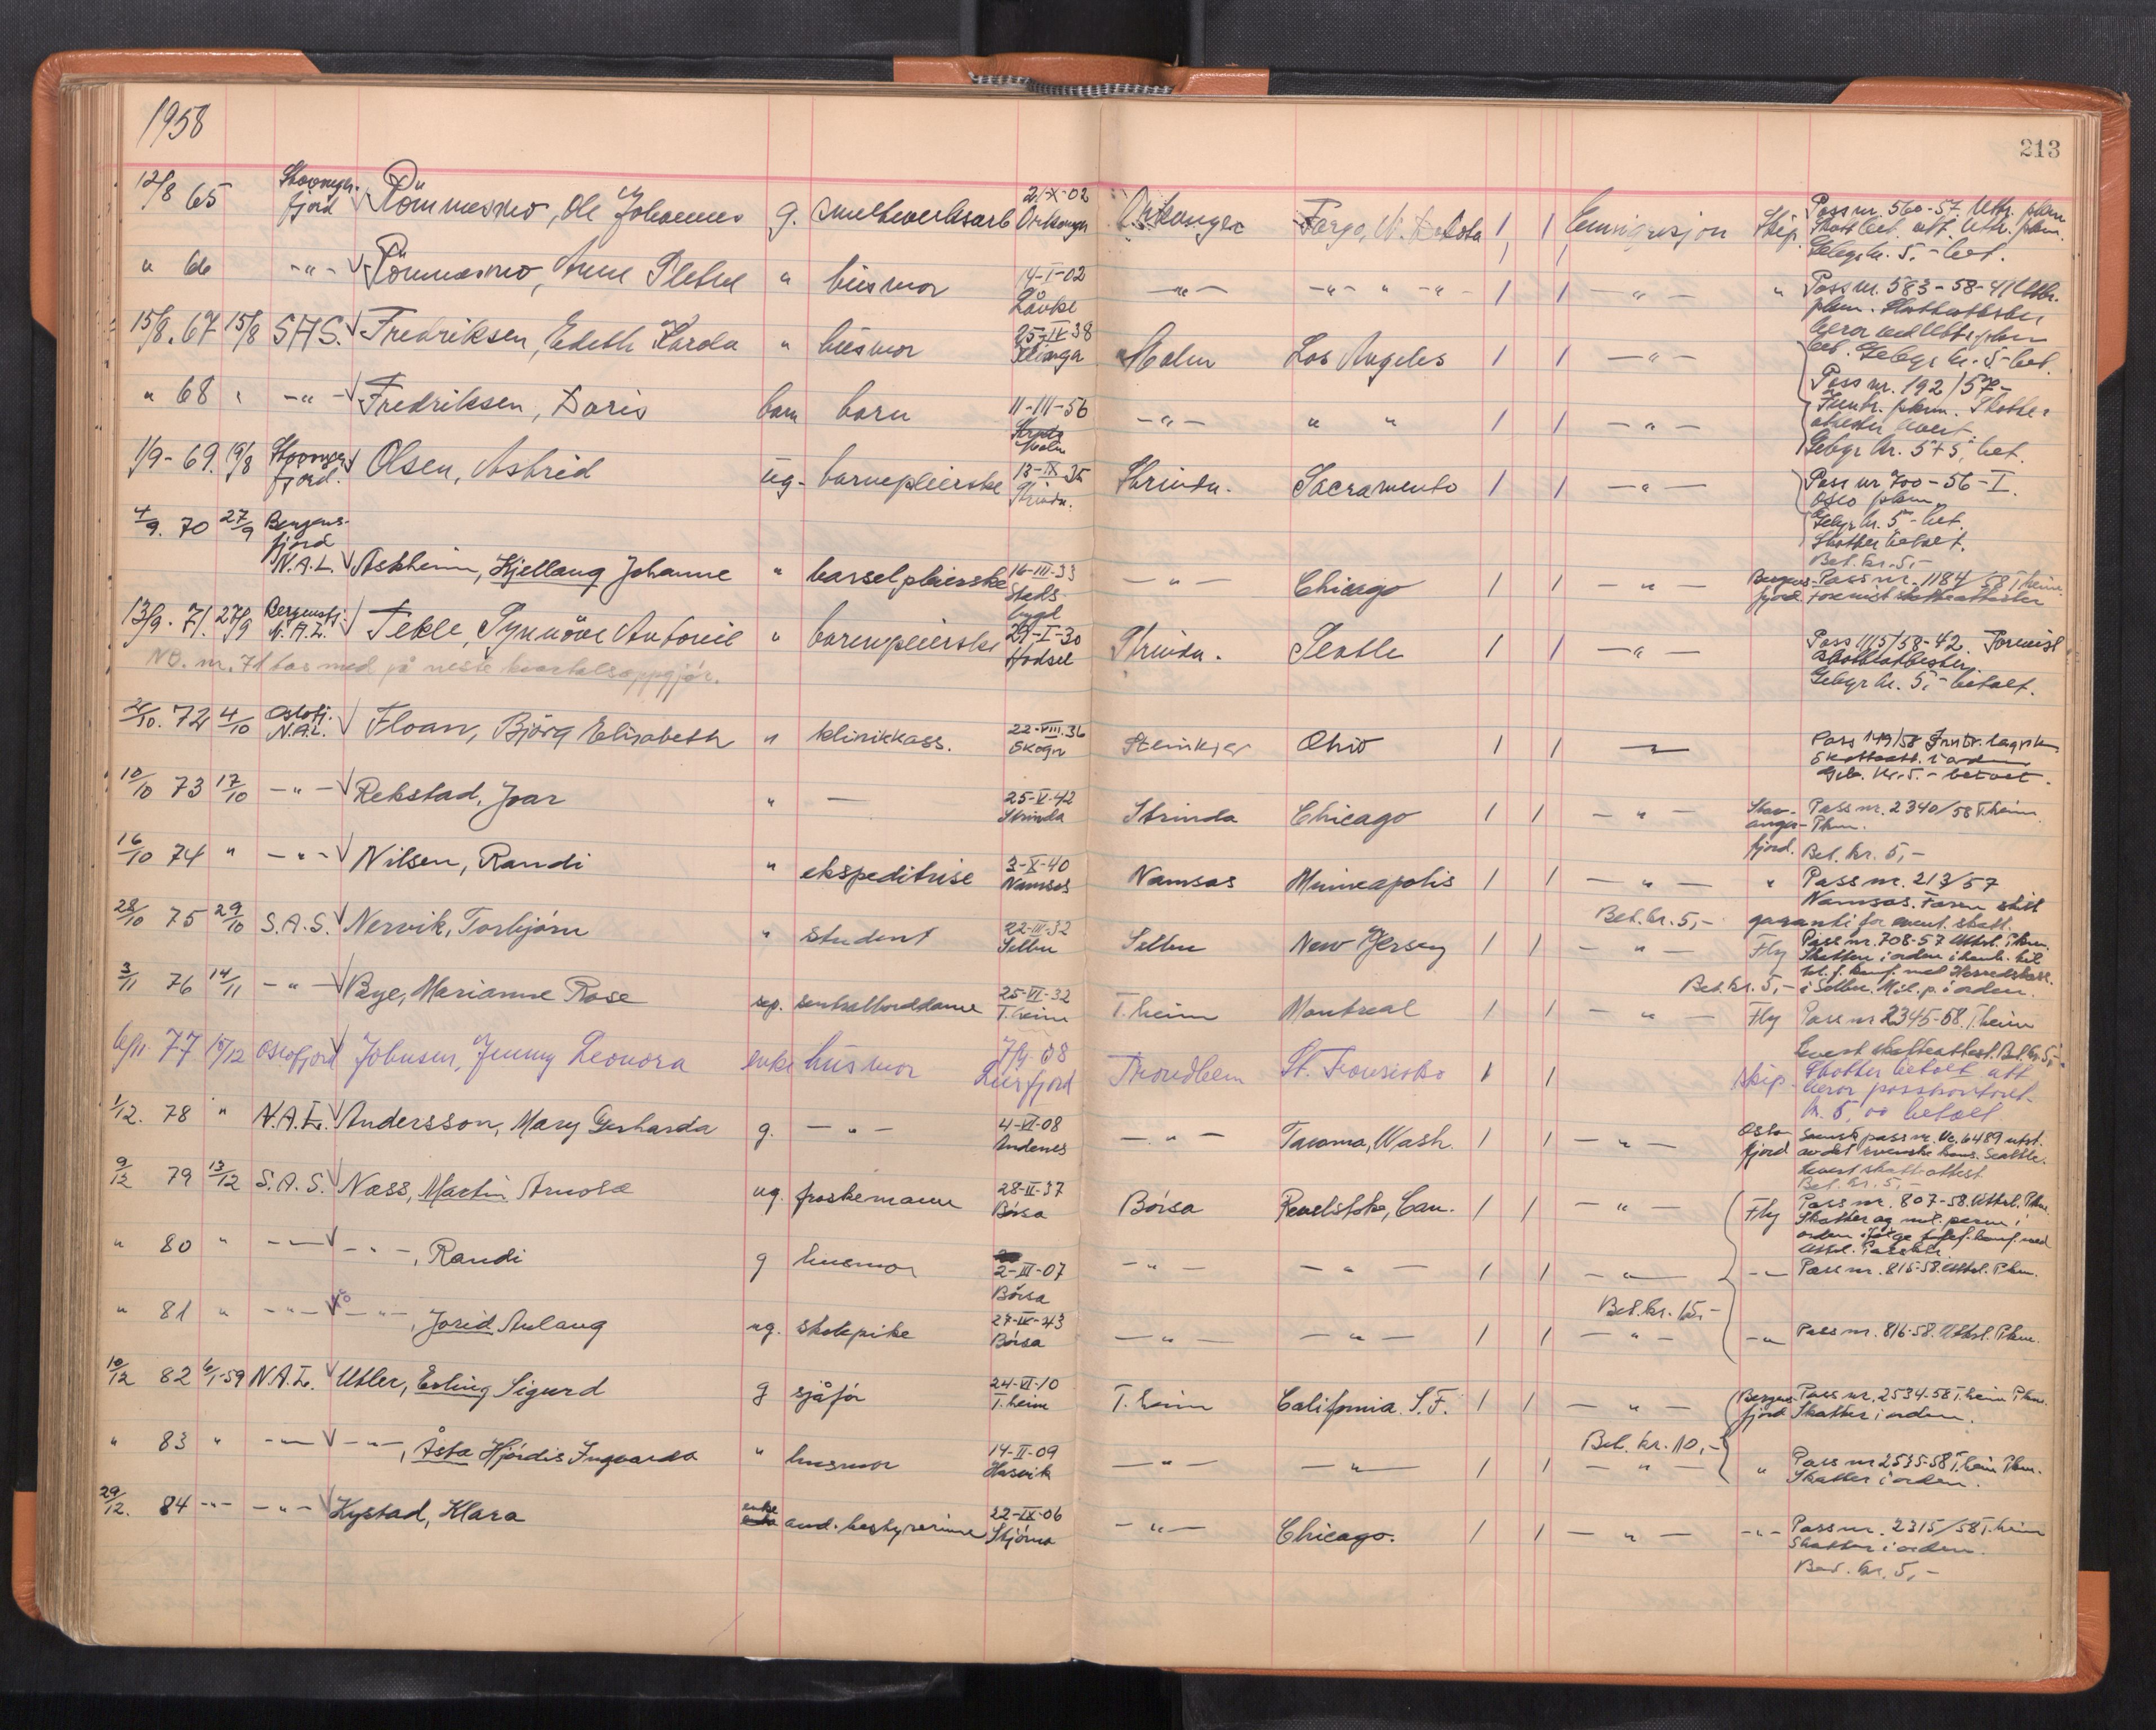 1958
213
12/8 65 Stavanger- fjord Römmesmo, Ole Johannes g. smelteverksarb 21-X-02 Orkanger Orkanger Fargo, N. Dakota 1 1 Emigrasjon Skip. Pass nr. 560-57. Uttr. pkm.
Skatt bet. att. Uttr. pkm.
Gebyr kr. 5,- bet.
" 66 -"- Römmesmo, Anne " husmor 14-I-02 Lånke -"- -"- " -"- 1 1 -"- " Pass nr. 583-58-41 Uttr.
pkm. Skatteattester
15/8. 67 15/8 SAS. Fredriksen, Edith " husmor 25-IV-38 Klinga Malm Los Angeles 1 1 -"-
bet. Gebyr kr. 5- bet.
" 68 " -"- Fredriksen, Doris barn barn 11-III-56 Malm -"- " " 1 1 -"- Pass nr. 192/57-
pkm. Skatte-
attester levert.
Gebyr kr. 5+5, bet.
1/9- 69. 19/8 Stavanger fjord. Olsen, Astrid ug- barnepleierske 13-IX-35 Strinda. Strinda. Sacramento 1 1 -"- Pass nr 700-56-I.
Oslo pkm.
Gebyr kr. 5- bet.
Skatter betalt.
4/9. 70 27/9 Bergens-
fjord
N.A.L. Askheim, Kjellaug Johanne " barselpleierske 16-III-33 Stads- bygd -"- Chicago 1 1 -"- Bergens- fjord Bet. kr. 5,-
Pass nr. 1184/58 T.heim.
Forevist skatteattester
13/9. 71. 27/9 Bergensfj. N.A.L. Tekle, Synnöve Antonie " barnepleierske 29-I-30 Hadsel Strinda. Seatle 1 1 -"- Pass 1115/58-42. Forevist
skatteattester.
Gebyr kr. 5,- betalt.
NB. nr. 71 tas med på neste kvartalsoppgjør.
2/10. 72 4/10 Oslofj. N.A.L. Floan, Björg Elisabeth " klinikkass. 22-VIII-36 Skogn Steinkjer Ohio 1 1 Pass 149/58
Skatteatt. i orden
Geb. kr. 5.- betalt.
10/10 73 17/10 -"- Rekstad, Ivar " — 25-V-42 Strinda Strinda Chicago 1 1 -"- Stav- anger- fjord. Pass nr. 2340/58 T.heim
Pkm.
Bet. kr. 5,-
16/10 74 " -"- Nilsen, Randi " ekspeditrise 3-X-40 Namsos Namsos Minneapolis 1 1 -"- " Pass nr. 213/57
Namsos. Faren stilt
Bet. kr. 5,- garanti for event. skatt.
28/10 75 29/10 S.A.S. Nervik, Torbjørn " student 22-III-32 Selbu Selbu New Jersey 1 1 -"- Fly Pass nr. 708-57 Uttrl. Pkm.
Skatten i orden i henh. til
tel. j. konf. med Herredskass.
Bet. kr. 5,- i Selbu. Mil. p. i orden.
3/11 76 14/11 -"- Bye, Marianne Rose sep. sentralborddame 25-VI-32 T.heim T.heim Montreal 1 1 -"- Fly Pass nr 2345-58. T.heim
Levert skatteattest. Bet. kr. 5,-
6/11. 77 15/12 Oslofjord Johnsen, Jenny Leonora enke husmor 08 Trondheim St. Fransisko 1 1 skip. Skatter betalt att
kr. 5,00 betalt
1/12. 78 " N.A.L. Andersson, Mary Gerharda g. -"- 4-VI-08 Andenes -"- Tacoma, Wash. 1 1 -"- Oslo- fjord Svensk pass nr. 6489 utst.
av det svenske kons. Seattle.
Levert skatteattest
Bet. kr. 5,-
9/12 79 13/12 S.A.S. Næss, Martin Arnold ug. froskemann 28-II-37 Börsa Börsa Revelstoke, Can. 1 1 -"- Fly Pass nr. 807-58. Uttrl. Pkm.
Skatter og mil. perm i
orden ifølge telef. konf. med
" 80 " -"- -"-, Randi g husmor 2-III-07 Börsa -"- -"- 1 1 -"- -"- Pass nr. 815-58. Uttrl. Pkm.
Bet. kr. 15,-
" 81 " -"- -"-, Jorid Aslaug ug. skolepike 27-IX-43 Börsa -"- -"- 1 1 -"- -"- Pass nr. 816-58. Uttrl. Pkm.
10/12 82 6/1-59 N.A.L. Utler, Erling Sigurd g sjåför 24-VI-10 T.heim T.heim California. S.F. 1 1 -"- Bergens- fjord Pass nr. 2534-58 T.heim Pkm.
Skatter i orden.
Bet. kr. 10,-
" 83 " -"- -"-, Åsta Hjördis Ingvarda " husmor 14-II-09 Hasvik -"- -"- 1 1 -"- " Pass nr 2535-58 T.heim Pkm.
Skatter i orden.
29/12. 84 -"- -"- Kystad, Klara enke avd. bestyrerinne 22-IX-06 Stjörna -"- Chicago. 1 1 -"- -"- Pass nr. 2315/58 T.heim
Skatter i orden.
Bet. kr. 5,-